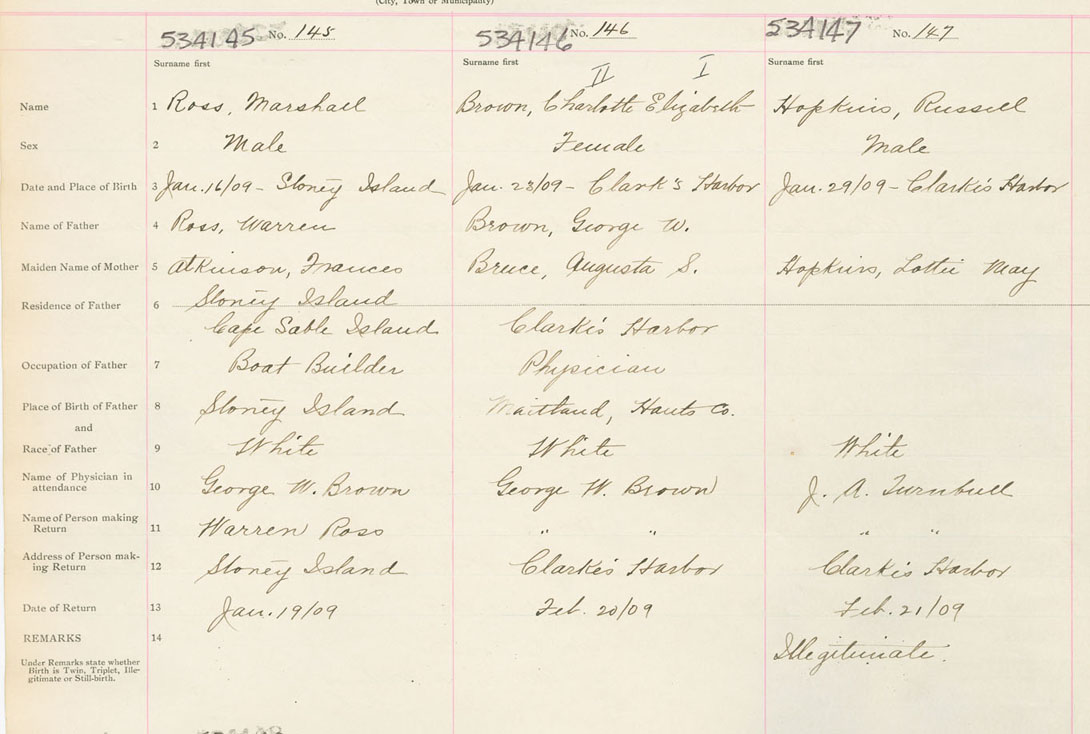 (City, Town or Municipality)
534145 No. 145 534146 No. 146 534147 No. 147
Surname first Surname first Surname first
II I
Name 1 Ross, Marshall Brown, Charlotte Elizabeth Hopkins, Russell
Sex 2 Male Female Male
Date and Place of Birth 3 Jan. 16/09 - Stoney Island Jan. 23/09 - Clark's Harbor Jan. 29/09 - Clark's Harbor
Name of Father 4 Ross, Warren Brown, George W.
Maiden Name of Mother 5 Atkinson, Frances Bruce, Augusta S. Hopkins, Lottie May
Residence of Father 6 Stoney Island
Cape Sable Island Clark's Harbor
Occupation of Father 7 Boat Builder Physician
Place of Birth of Father 8 Stoney Island Maitland, Hants Co.
and
Race of Father 9 White White White
Name of Physician in
attendance 10 George W. Brown George W. Brown J. A. Turnbull
Name of Person making
Return 11 Warren Ross " " " "
Address of Person mak-
ing Return 12 Stoney Island Clark's Harbor Clark's Harbor
Date of Return 13 Jan. 19/09 Feb. 20/09 Feb. 21/09
REMARKS 14
Illegitimate.
Under Remarks state whether
Birth is Twin, Triplet, Ille-
gitimate or Still-birth.